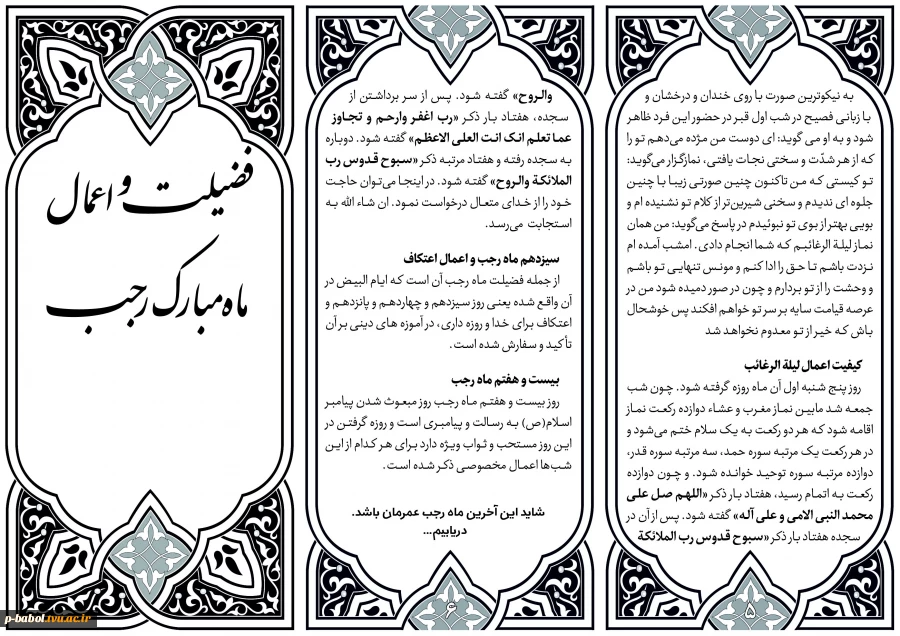 به نیکوترین صورت با روی خندان و درخشان و
با زبانی فصیح در شب اول قبر در حضور این فرد ظاهر
شود و به او می گوید: ای دوست من مژده می‌دهم تو را
که از هر شدّت و سختی نجات یافتی، نمازگزار می‌گوید:
تو کیستی که من تاکنون چنین صورتی زیبا با چنین
جلوه ای ندیدم و سخنی شیرین‌تر از کلام تو نشنیده ام و
بویی بهتر از بوی تو نبوئیدم در پاسخ می‌گوید: من همان
نماز لیلة الرغائبم که شما انجام دادی. امشب آمده ام
نزدت باشم تا حق را ادا کنم و مونس تنهایی تو باشم
و وحشت را از تو بردارم و چون در صور دمیده شود من در
عرصه قیامت سایه بر سر تو خواهم افکند پس خوشحال
باش که خیر از تو معدوم نخواهد شد
کیفیت اعمال لیلة الرغائب
روز پنج شنبه اول آن ماه روزه گرفته شود. چون شب
جمعه شد مابین نماز مغرب و عشاء دوازده رکعت نماز
اقامه شود که هر دو رکعت به یک سلام ختم می‌شود و
در هر رکعت یک مرتبه سوره حمد، سه مرتبه سوره قدر،
دوازده مرتبه سوره توحید خوانده شود. و چون دوازده
رکعت به اتمام رسید، هفتاد بار ذکر «اللهم صل علی
محمد النبی الامی و علی آله» گفته شود. پس از آن در
سجده هفتاد بار ذکر «سبوح قدوس رب الملائکة
۵
والروح» گفته شود. پس از سر برداشتن از
سجده، هفتاد بار ذکر «رب اغفر وارحم و تجاوز
عما تعلم انک انت العلی الاعظم» گفته شود. دوباره
به سجده رفته و هفتاد مرتبه ذکر «سبوح قدوس رب
الملائکة والروح» گفته شود. در اینجا می‌توان حاجت
خود را از خدای متعال درخواست نمود. ان شاء الله به
استجابت می‌رسد.
سیزدهم ماه رجب و اعمال اعتکاف
از جمله فضیلت ماه رجب آن است که ایام البیض در
آن واقع شده یعنی روز سیزدهم و چهاردهم و پانزدهم و
اعتکاف برای خدا و روزه داری، در آموزه های دینی بر آن
تأکید و سفارش شده است.
بیست و هفتم ماه رجب
روز بیست و هفتم ماه رجب روز مبعوث شدن پیامبر
اسلام(ص) به رسالت و پیامبری است و روزه گرفتن در
این روز مستحب و ثواب ویژه دارد برای هر کدام از این
شب‌ها اعمال مخصوصی ذکر شده است.
شاید این آخرین ماه رجب عمرمان باشد.
دریابیم...
۶
فضیلت و اعمال
ماه مبارک رجب
p-babol.tvu.ac.ir